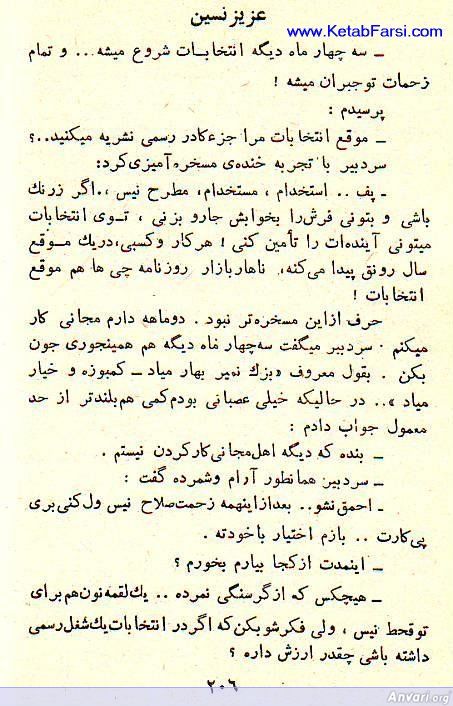 عزیز نسین
www.KetabFarsi.com
ـ سه چهار ماه دیگه انتخابات شروع میشه... و تمام
زحمات تو جبران میشه !
پرسیدم :
ـ موقع انتخابات مرا جزء کادر رسمی نشریه میکنید..؟
سردبیر با تجربه خنده‌ی مسخره‌آمیزی کرد:
ـ پف .. استخدام ، مستخدام، مطرح نیس ،.اگر زرنك
باشی و بتونی فرش را بخوابش جارو بزنی ، تـوی انتخابات
میتونی آینده‌ات را تأمین کنی ! هر کار وکسبی،دریك مـوقع
سال رونق پیدا می‌کنه، ناهاربازار روزنامه چی ها هم موقع
انتخابات !
حرف ازاین مسخره‌تر نبود . دوماهه دارم مجانی کار
میکنم . سردبیر میگفت سه‌چهار ماه دیگه هم همینجوری جون
بکن . بقول معروف «بزك نمیر بهار میاد ــ کمبوزه و خیار
میاد ».. در حالیکه خیلی عصبانی بودم‌کمی هم‌بلندتر از حد
معمول جواب دادم :
ـ بنده که دیگه اهل‌مجانی‌کارکردن نیستم .
ـ سردبیر همانطور آرام وشمرده گفت :
ـ احمق‌نشو.. بعدازاینهمه زحمت‌صلاح نیس ول‌کنی‌بری
پی‌کارت .. بازم اختیار باخودته .
ـ اینمدت ازکجا بیارم بخورم ؟
ـ هیچکس که ازگرسنگی نمرده .. یك‌لقمه‌نون‌هم‌برای
توقحط نیس ، ولی فکرشوبکن‌که اگردر انتخابات‌یك‌شغل‌رسمی
داشته باشی چقدر ارزش داره ؟
۲۰۶
Anvari.org